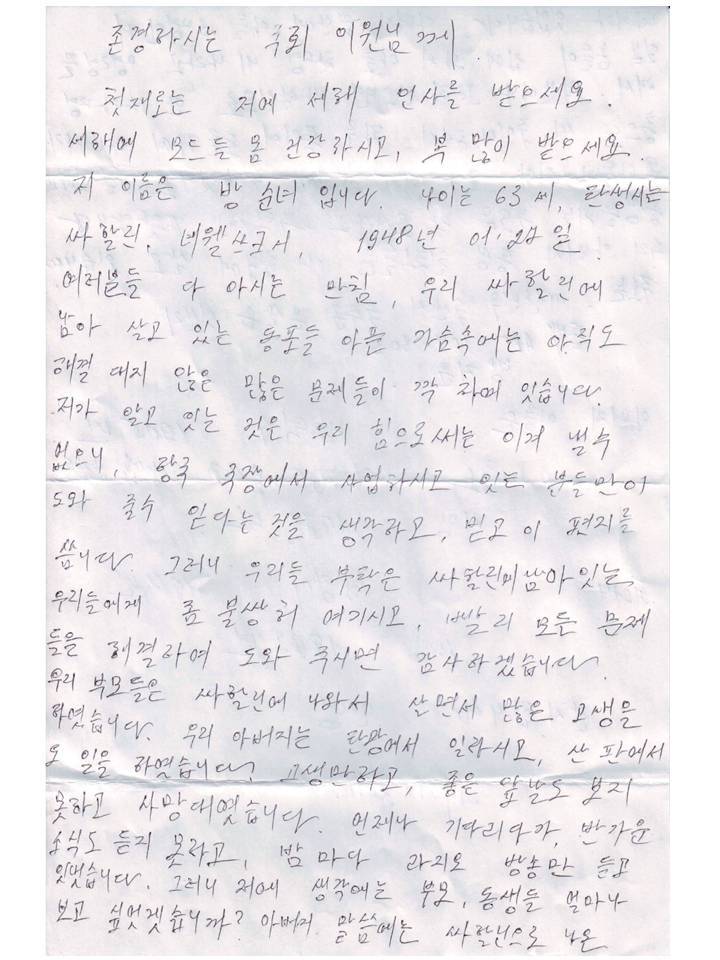 존경하시는 국회 이원님께.
첫재로는 저에 세해 인사를 받으세요.
세해에 모드들 몸 건강하시고, 복 많이 받으세요.
저 이름은 방 순녀 입니다. 나이는 63 세, 탄생지는
싸할린. 네웰쓰크시, 1948년 일.
여러분들 다 아시는 만침, 우리 싸할린에
남아 살고 있는 동포들 아픈 가슴속에는 아직도
해결 대지 않은 많은 문제들이 꽉 차에 잇습니다.
저가 알고 잇는 것은 우리 힘으로써는 이겨 낼수
없으니, 한국 국장에서 사업하시고 잇는 분들만이
도와 줄수 잇다는 것을 생각하고, 믿고 이 편지를
씁니다. 그러니 우리들 부탁은 싸할린에 남아잇는
우리들에게 좀 불쌍히 여기시고, 빨리 모든 문제
들을 해결하여 도와 주시면 감사하겠습니다.
우리 부모들은 싸할린에 나와서 살면서 많은 고생을
하였습니다. 우리 아버지는 탄광에서 일하시고, 산판에서
도 일을 하였습니다. 고생만하고, 좋은 앞날도 보지
못하고 사망대였습니다. 언제나 기다리다가, 반가운
소식도 듣지 못하고, 밤 마다 라지오 방송만 듣고
잇엇습니다. 그러니 저에 생각에는 부모, 동생들 얼마나
보고 싶엇겟습니까? 아버지 말씀에는 싸할린으로 나온